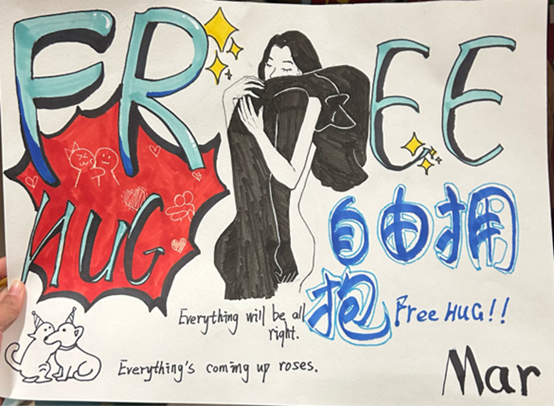 FREE
HUG
自由拥
抱 Free HUG!!
Everything will be all
right.
Everything's coming up roses.
Mar